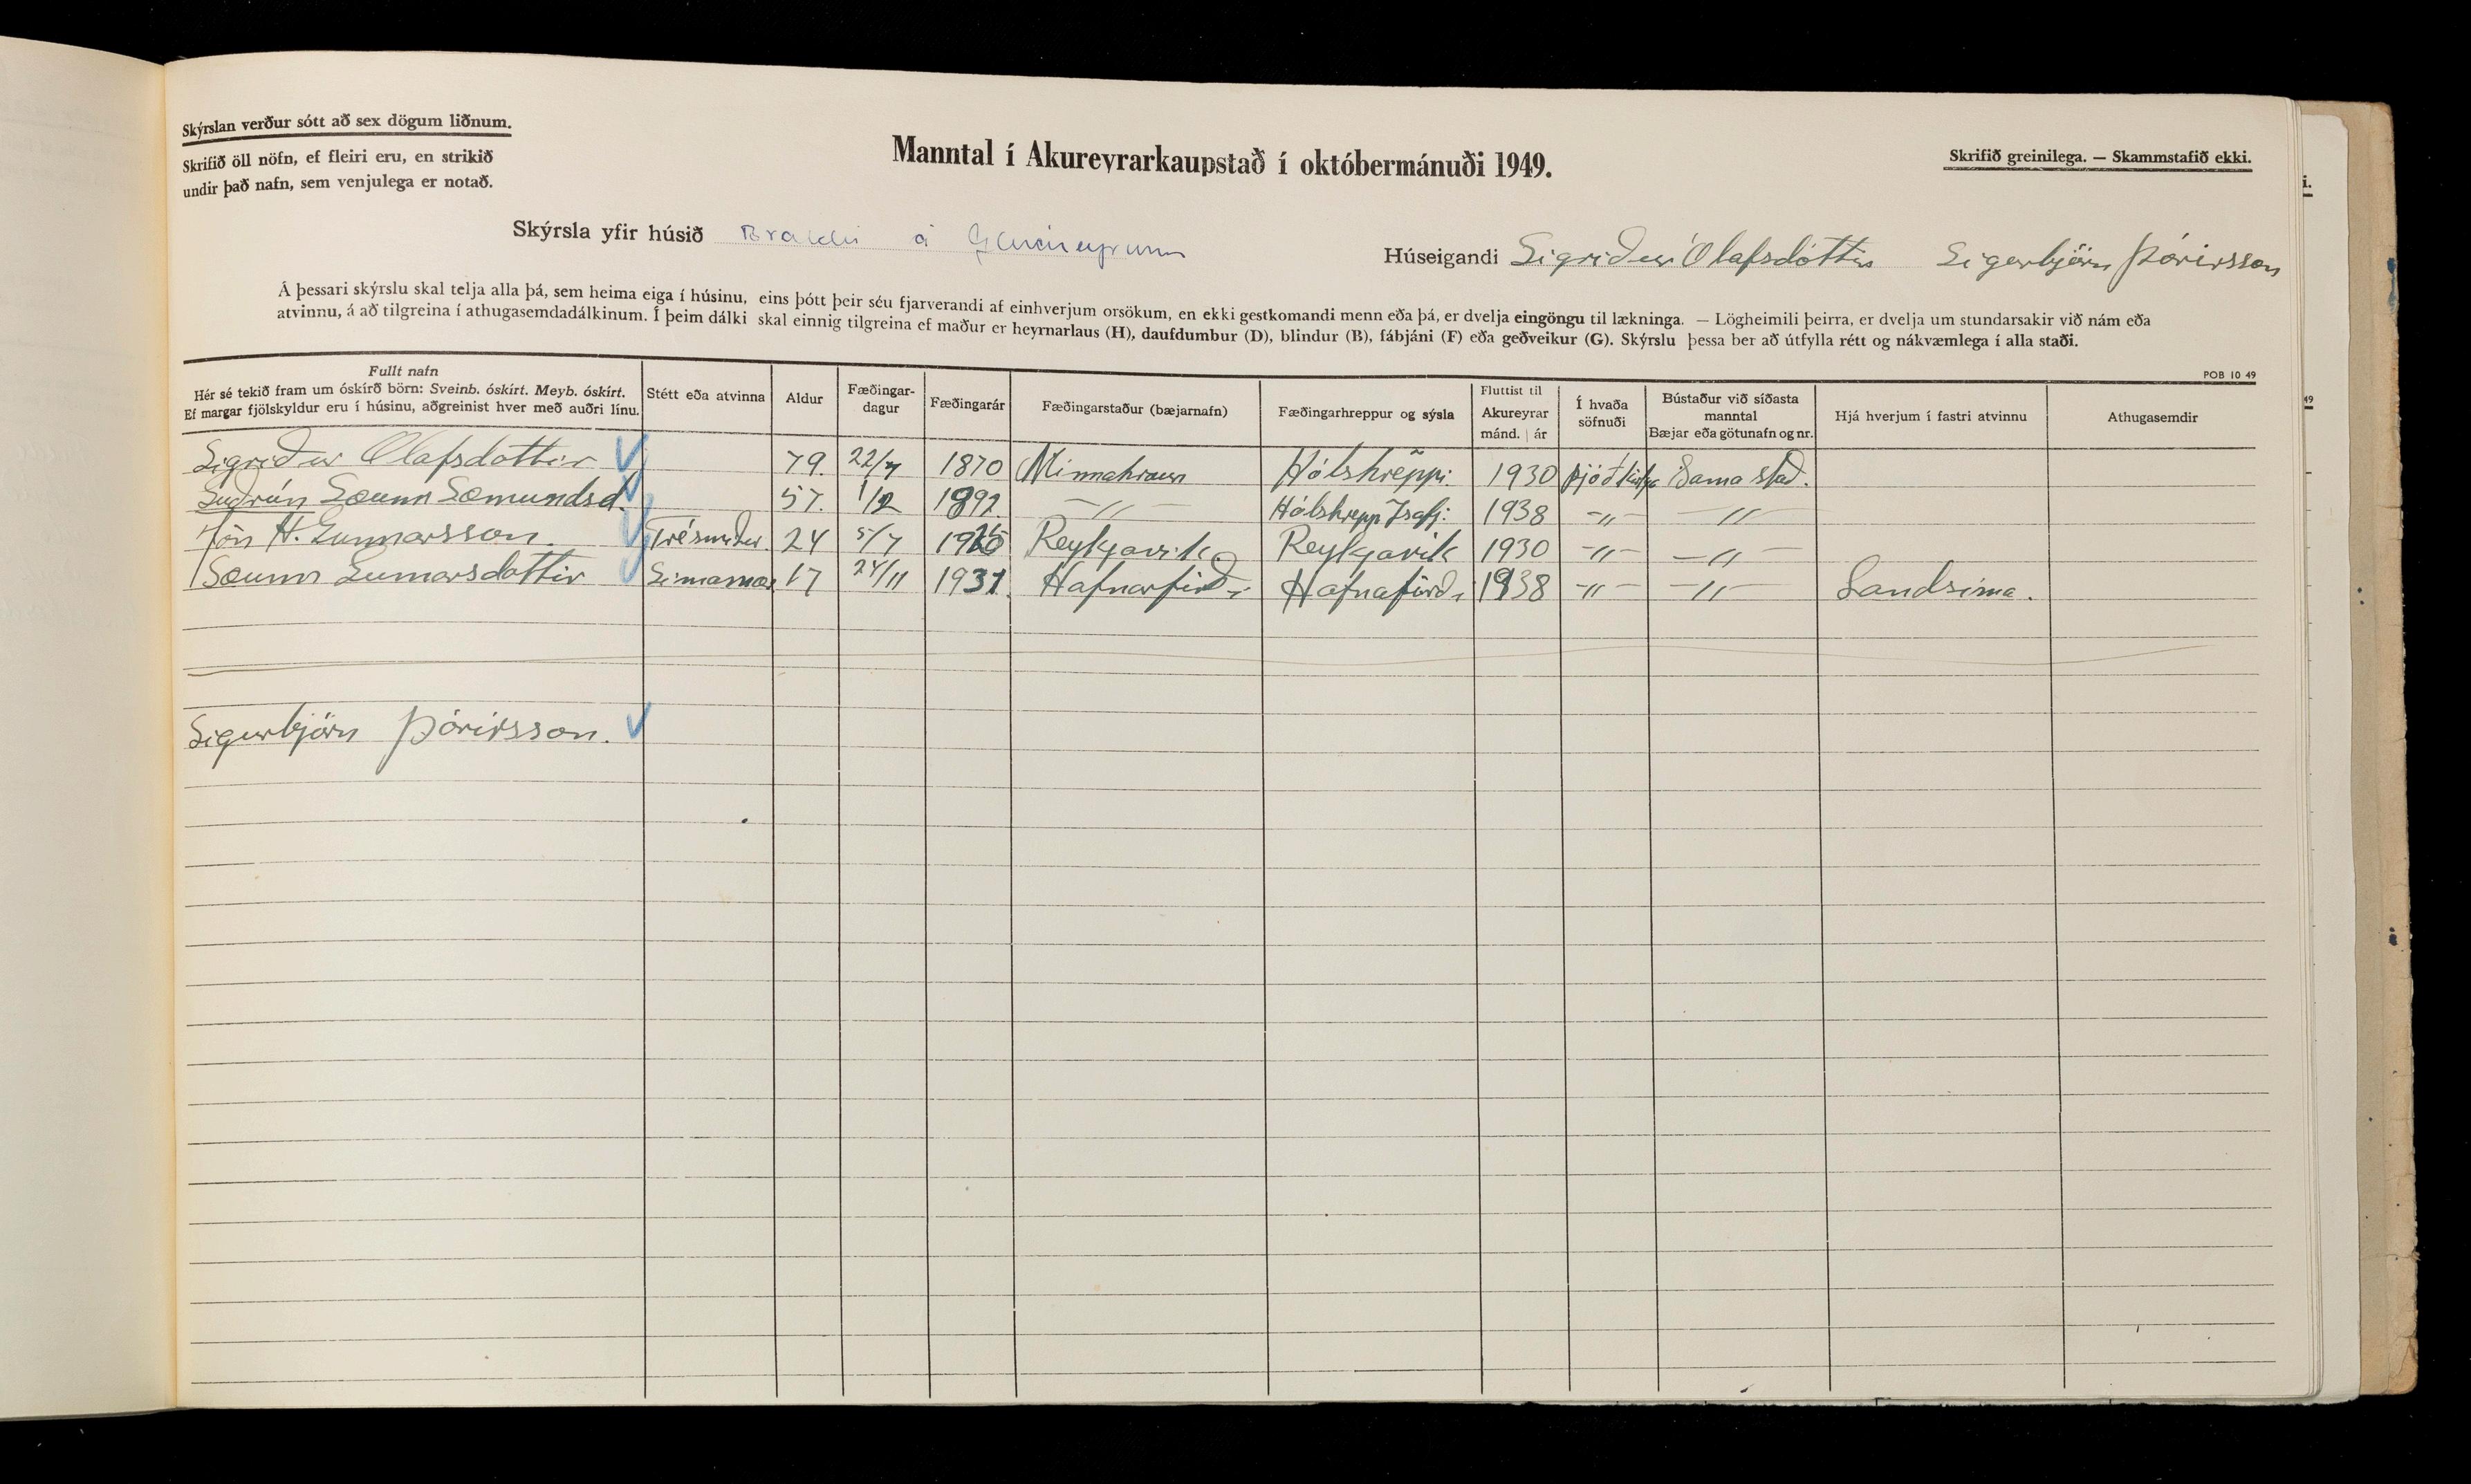 Skýrslan verður sótt að sex dögum liðnum.
Skrifið öll nöfn, ef fleiri eru, en strikið
undir það nafn, sem venjulega er notað.
Manntal í Akureyrarkaupstað í októbermánuði 1949.
Skrifið greinilega. — Skammstafið ekki.
Skýrsla yfir húsið á Gleráreyrum
Húseigandi Sigriður Ólafsdóttir Sigurbjörn Þórirsson
Á þessari skýrslu skal telja alla þá, sem heima eiga í húsinu, eins þótt þeir séu fjarverandi af einhverjum orsökum, en ekki gestkomandi menn eða þá, er dvelja eingöngu til lækninga. — Lögheimili þeirra, er dvelja um stundarsakir við nám eða
atvinnu, á að tilgreina í athugasemdadálkinum. Í þeim dálki skal einnig tilgreina ef maður er heyrnarlaus (H), daufdumbur (D), blindur (B), fábjáni (F) eða geðveikur (G). Skýrslu þessa ber að útfylla rétt og nákvæmlega í alla staði.
POB 10 49
Fullt nafn
Hér sé tekið fram um óskírð börn: Sveinb. óskírt. Meyb. óskírt.
Ef margar fjölskyldur eru í húsinu, aðgreinist hver með auðri línu.
Stétt eða atvinna
Aldur
Fæðingar-
dagur
Fæðingarár
Fæðingarstaður (bæjarnafn)
Fæðingarhreppur og sýsla
Fluttist til
Akureyrar
mánd. | ár
Í hvaða
söfnuði
Bústaður við síðasta
manntal
Bæjar eða götunafn og nr.
Hjá hverjum í fastri atvinnu
Athugasemdir
Sigriður Olafsdottir 79. 22/7 1870 Minnahraun Hólshreppi. 1930 Þjóðkirkju Sama stað.
Guðrún Sæunn Sæmundsd. 57. 1/2 1892. —〃— Hólshrepp Isafj: 1938 -〃- —〃
Jón H. Gunnarsson. Trésmiður. 24 5/7 1925 Reykjavik. Reykjavik 1930 -〃- —〃—
Sæunn Gunnarsdottir Símamær 17 24/11 1931. Hafnarfirði Hafnafirði 1938 -〃- —〃— Landsíma.
Sigurbjörn Þórirsson.